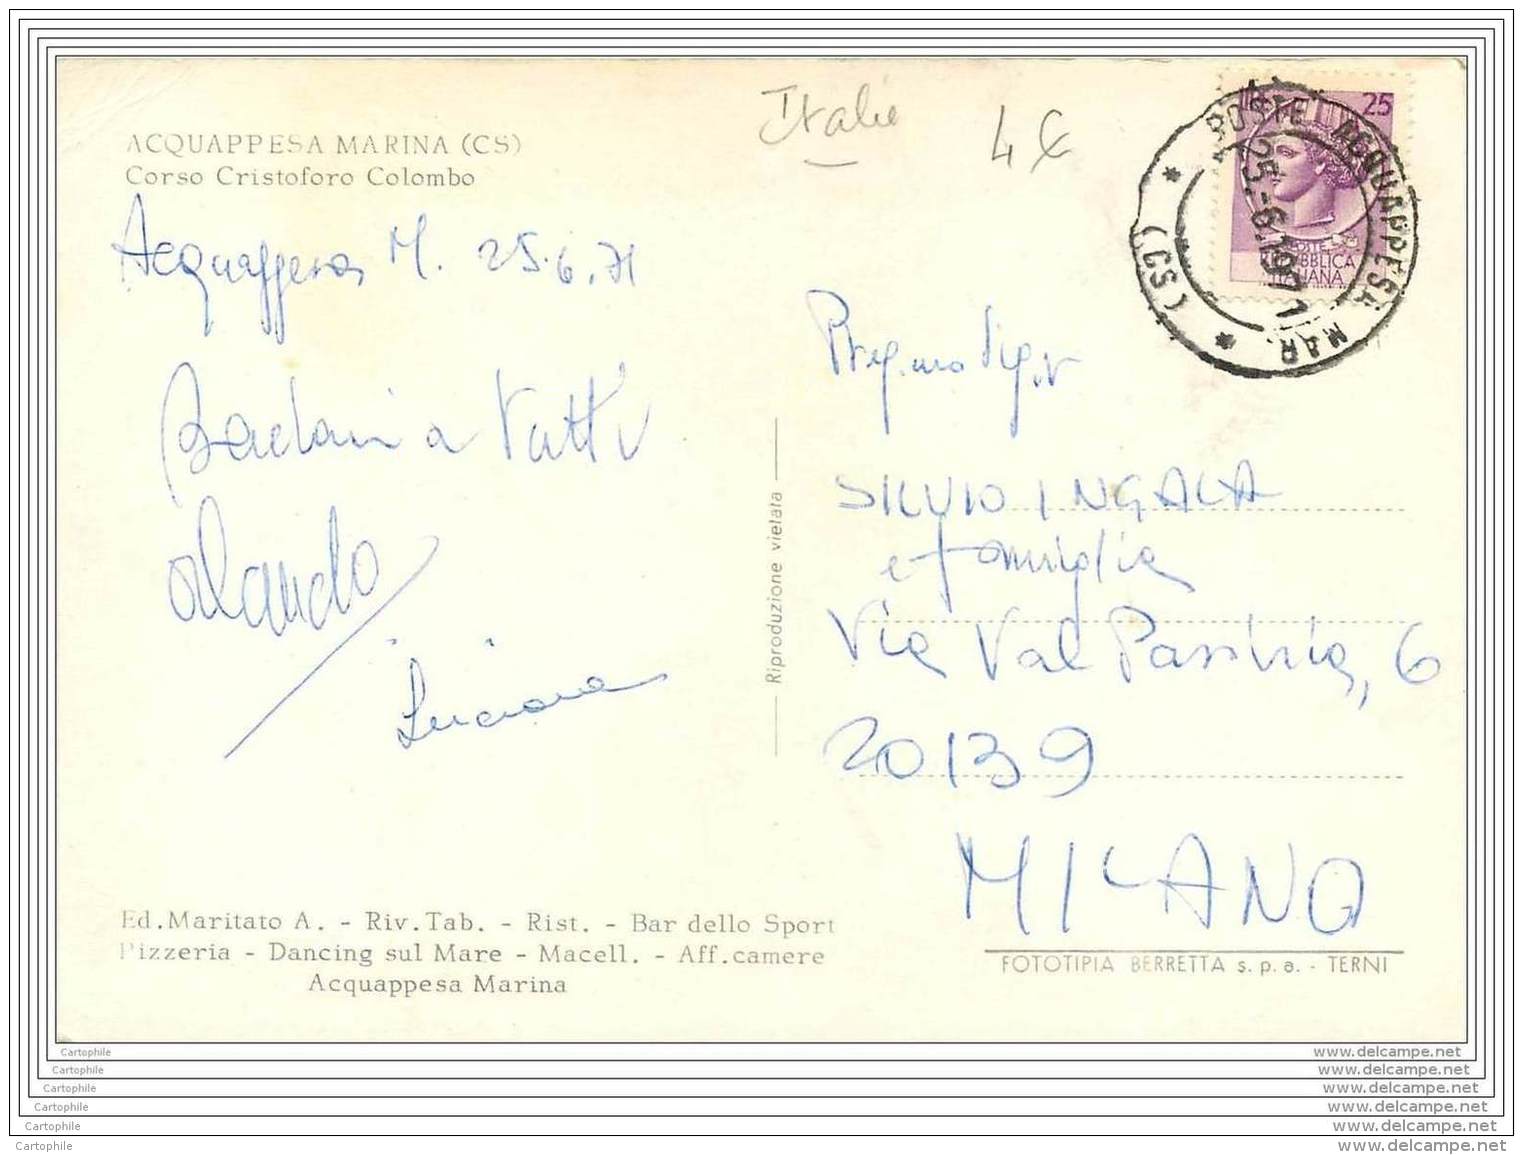 Italie
4 €
ACQUAPPESA MARINA (CS)
Corso Cristoforo Colombo
Acquappesa M. 25.6.71
Bacioni a Tutti
Orlando
Luciana
25
POSTE
REPUBBLICA
ITALIANA
POSTE ACQUAPPESA MAR. * (CS) *
25.-6.1971
Preg.mo Sig.r
SILVIO INGALA
e famiglia
Via Val Passiria, 6
20139
MILANO
Riproduzione vietata
Ed. Maritato A. - Riv. Tab. - Rist. - Bar dello Sport
Pizzeria - Dancing sul Mare - Macell. - Aff. camere
Acquappesa Marina
FOTOTIPIA BERRETTA s.p.a. - TERNI
Cartophile
Cartophile
Cartophile
Cartophile
Cartophile
Cartophile
www.delcampe.net
www.delcampe.net
www.delcampe.net
www.delcampe.net
www.delcampe.net
www.delcampe.net